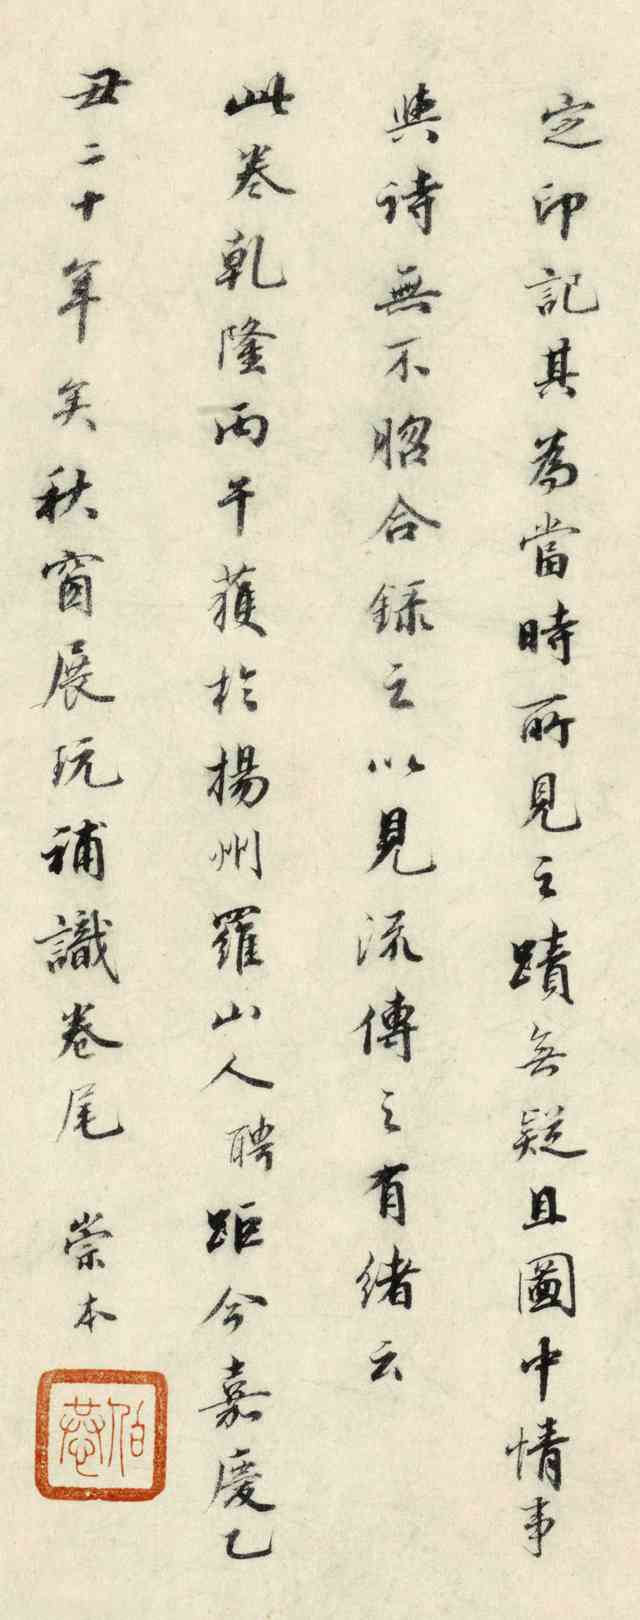 定印記其為當時所見之蹟無疑且圖中情事
與詩無不昭合錄之以見流傳之有緒云
此卷乾隆丙午獲於揚州羅山人聘距今嘉慶乙
丑二十年矣秋窗展玩補識卷尾 崇本